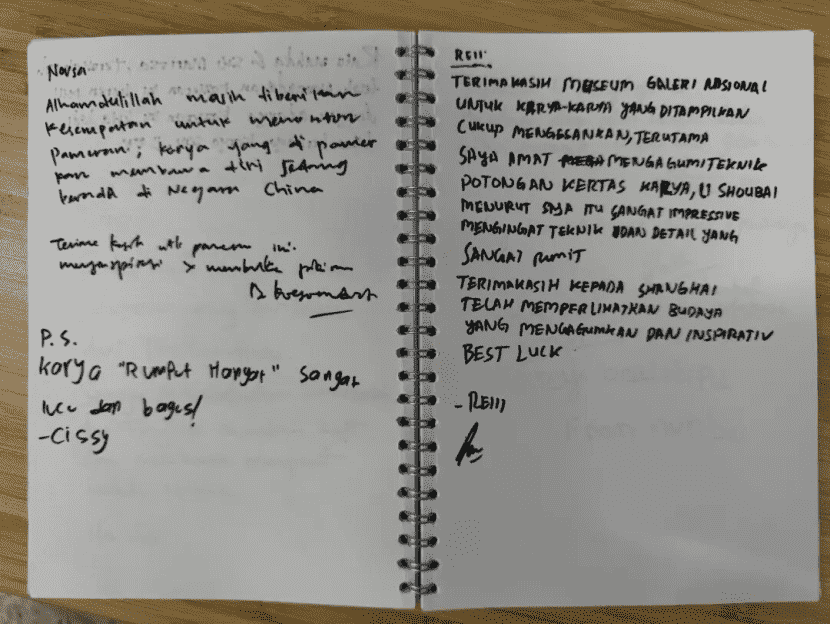 Novsa
Alhamdulillah masih diberikan
Kesempatan untuk menonton
Pameran, karya yang di pamer
kan membawa diri sedang
berada di Negara China
Terima kasih utk pameran ini.
menginspirasi & membuka pikiran
P.S.
karya "Rumput Hangat" sangat
lucu dan bagus!
-Cissy
REII
TERIMAKASIH MUSEUM GALERI NASIONAL
UNTUK KARYA-KARYA YANG DITAMPILKAN
CUKUP MENGESANKAN, TERUTAMA
SAYA AMAT MENGAGUMI TEKNIK
POTONGAN KERTAS KARYA, LI SHOUBAI
MENURUT SAYA ITU SANGAT IMPRESSIVE
MENGINGAT TEKNIK DAN DETAIL YANG
SANGAT RUMIT
TERIMAKASIH KEPADA SHANGHAI
TELAH MEMPERLIHATKAN BUDAYA
YANG MENGAGUMKAN DAN INSPIRATIV
BEST LUCK
- REIII